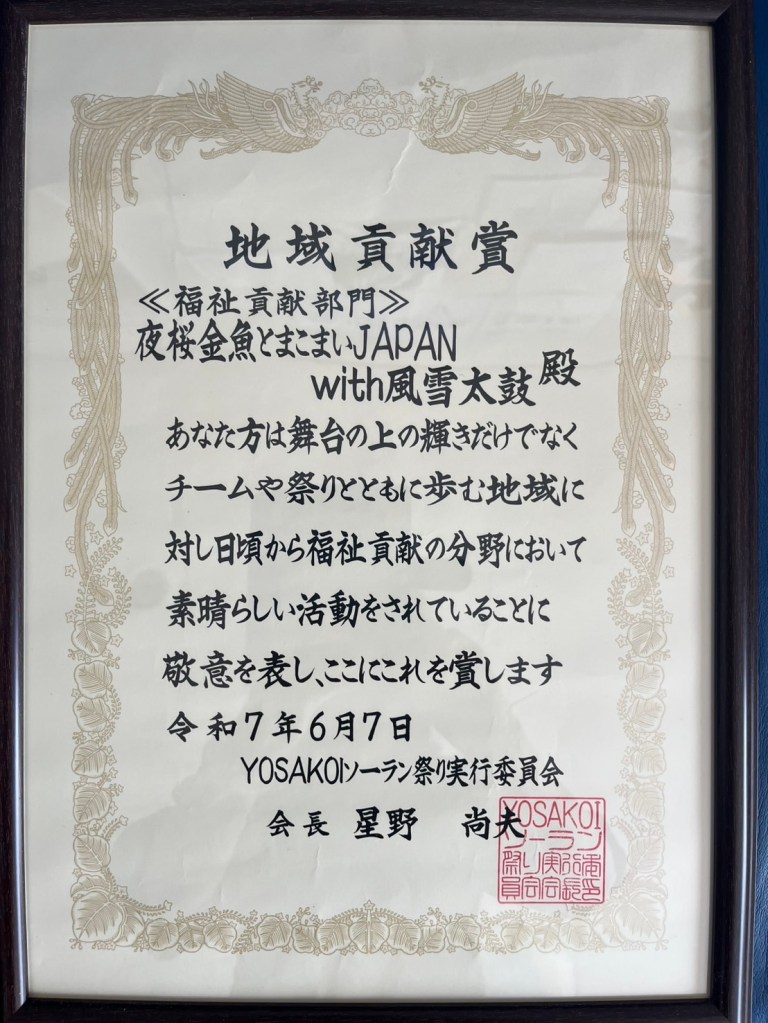 地域貢献賞
≪福祉貢献部門≫
夜桜金魚とまこまいJAPAN
with風雪太鼓 殿
あなた方は舞台の上の輝きだけでなく
チームや祭りとともに歩む地域に
対し日頃から福祉貢献の分野において
素晴らしい活動をされていることに
敬意を表し、ここにこれを賞します
令和7年6月7日
YOSAKOIソーラン祭り実行委員会
会長 星野 尚夫
YOSAKOI
ソーラン